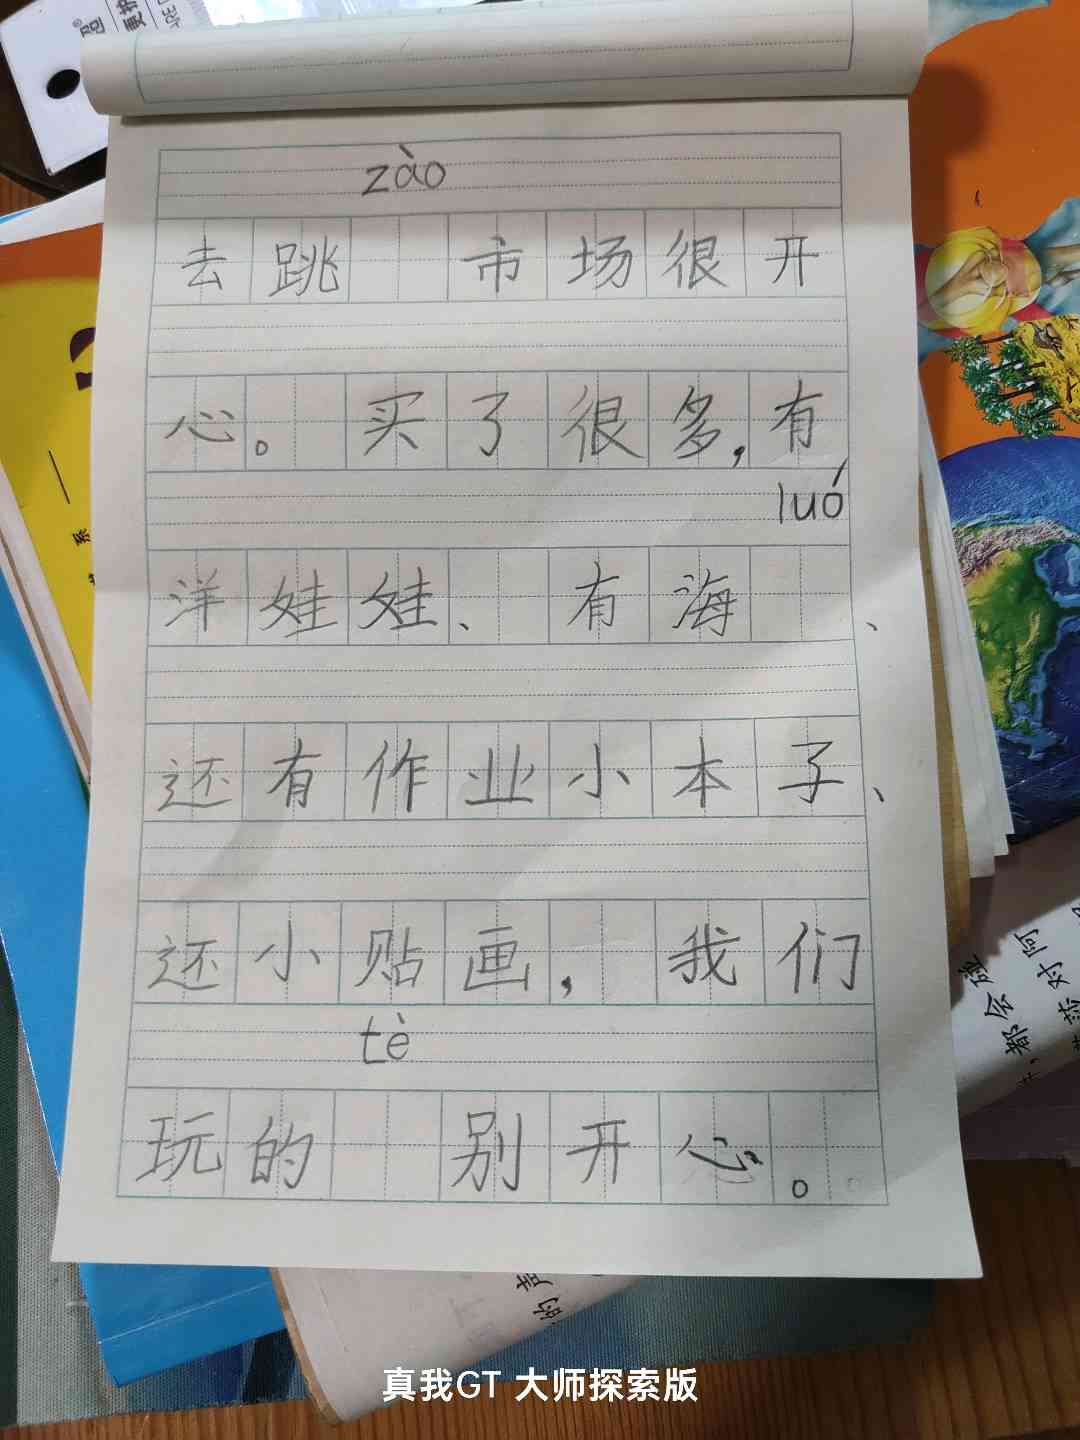 zào
去跳 市场很开
心。买了很多,有
luó
洋娃娃、有海 、
还有作业小本子、
还小贴画,我们
tè
玩的 别开心。
真我GT 大师探索版